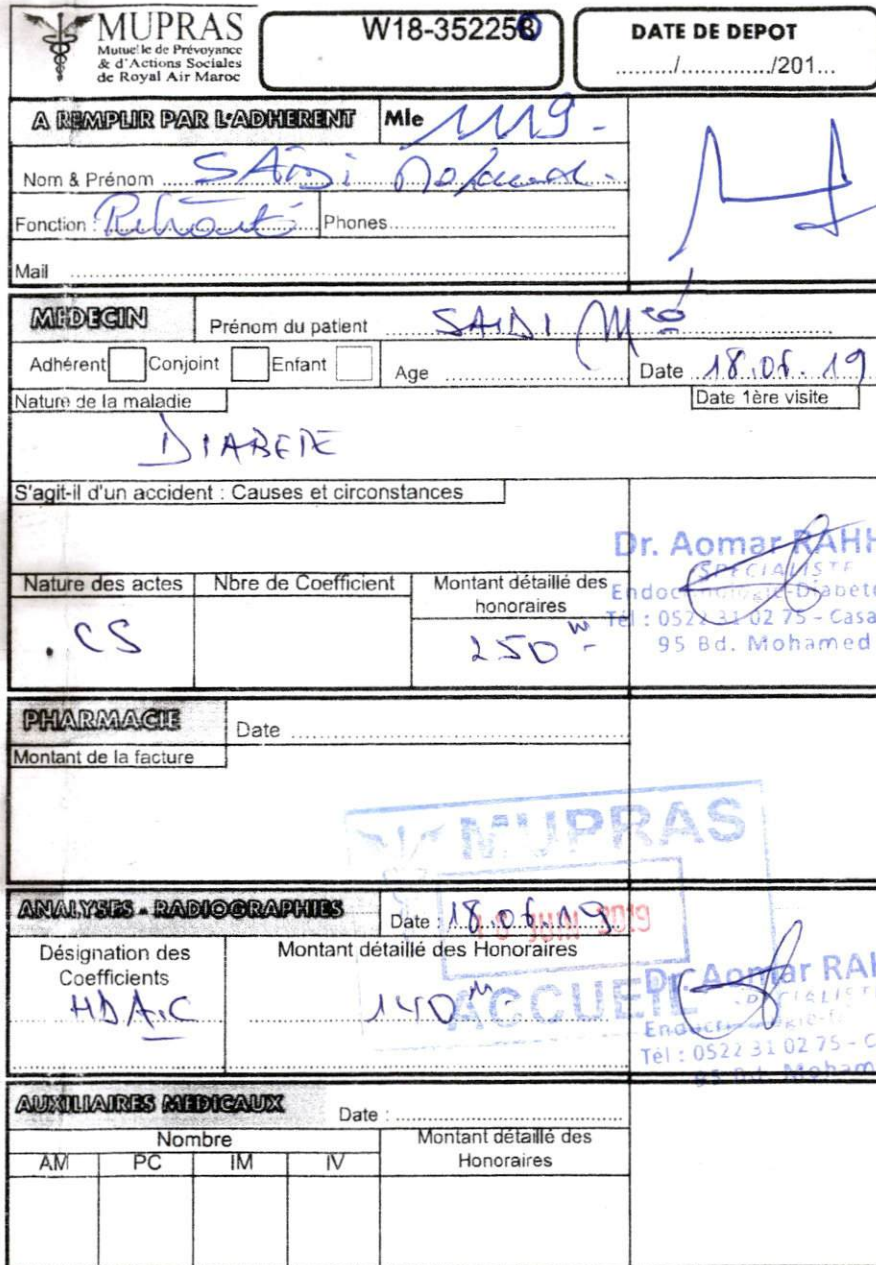 MUPRAS
Mutuelle de Prévoyance
& d'Actions Sociales
de Royal Air Maroc
W18-352258
DATE DE DEPOT
........./............./201...
A REMPLIR PAR L'ADHERENT
Mle 1119 -
Nom & Prénom SAIDI
Fonction : Retraité
Phones
Mail
MEDECIN
Prénom du patient SAIDI
Adhérent Conjoint Enfant
Age
Date 18.06.19
Nature de la maladie
Date 1ère visite
DIABETE
S'agit-il d'un accident : Causes et circonstances
Dr. Aomar RAHH
SPECIALISTE
Tél : 0522 31 02 75 - Casa
95 Bd. Mohamed
Nature des actes
Nbre de Coefficient
Montant détaillé des
honoraires
. CS
250
PHARMACIE
Date
Montant de la facture
MUPRAS
ANALYSES - RADIOGRAPHIES
Date : 18.06.19
JUIN 2019
Désignation des
Coefficients
Montant détaillé des Honoraires
HbA1C
140
ACCUEIL
Dr. Aomar RAH
SPECIALISTE
Tél : 0522 31 02 75 - C
95 Bd. Moham
AUXILIAIRES MEDICAUX
Date :
Nombre
Montant détaillé des
Honoraires
AM PC IM IV